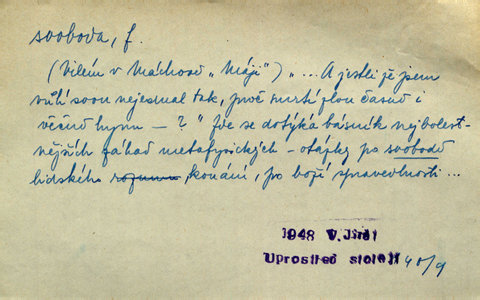 svoboda, f.
(Vilém v Máchově „Máji“) „... A jestliže jsem
vůlí svou nejednal tak, proč smrtí zlou časně i
věčně hynu – ? “ Zde se dotýká básník nejbolest-
nějších záhad metafysických – otázky po svobodě
lidského rozumu konání, po boží spravedlnosti ...
1948 V. Jirát
Uprostřed století 40/9